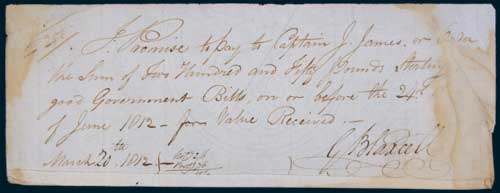 I Promise to pay to Captain J. James. or Order
the Sum of Two Hundred and Fifty Pounds Sterling
good Government Bills, on or before the 24th
of June 1812 - for Value Received. -
G Blaxcell
March 20th 1812